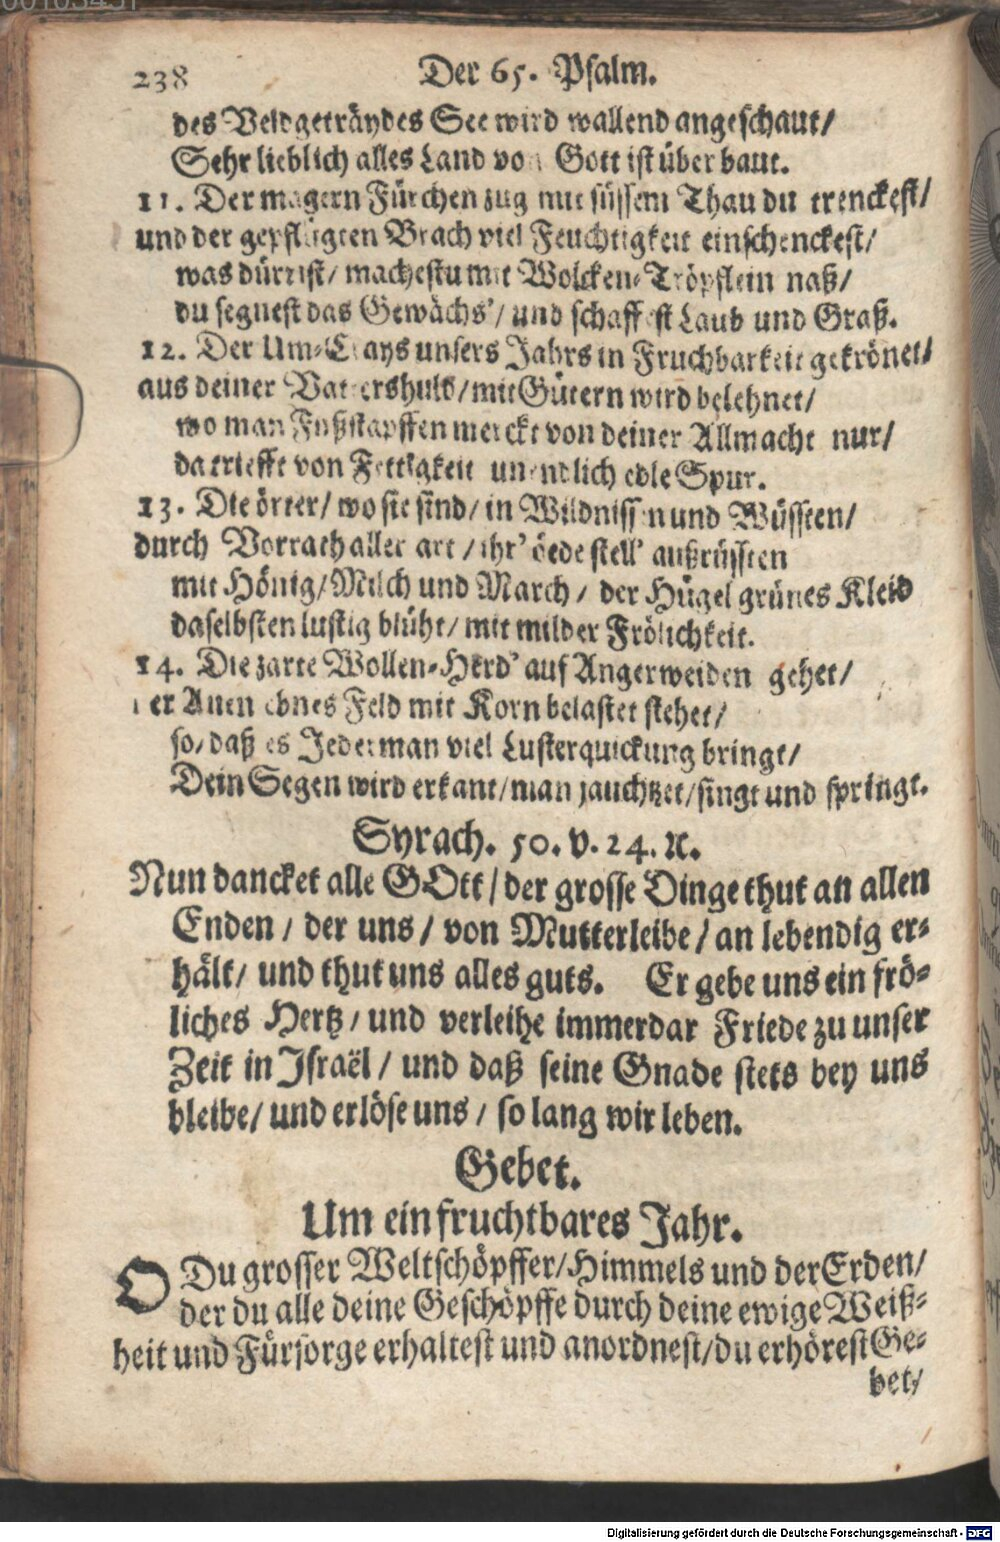 238 Der 65. Psalm.
des Veldgeträydes See wird wallend angeschaut/
Sehr lieblich alles Land von Gott ist überbaut.
11. Der magern Fürchen zug mit süssem Thau du trenckest/
und der gepflügten Brach viel Feuchtigkeit einschenckest/
was dürr ist/ machestu mit Wolcken-Tröpflein naß/
du segnest das Gewächs'/ und schaffest Laub und Graß.
12. Der Um-Crays unsers Jahrs in Fruchbarkeit gekrönet/
aus deiner Vattershuld/ mit Gütern wird belehnet/
wo man Fußstapffen merckt von deiner Allmacht nur/
da triefft von Fettigkeit unendlich edle Spur.
13. Die örter/ wo sie sind/ in Wildnissen und Wüssten/
durch Vorrath aller art/ ihr' öede stell' außrüssten
mit Hönig/ Milch und March/ der Hügel grünes Kleid
daselbsten lustig blüht/ mit milder Frölichkeit.
14. Die zarte Wollen-Herd' auf Angerweiden gehet/
der Auen ebnes Feld mit Korn belastet stehet/
so/ daß es Jederman viel Lusterquickung bringt/
Dein Segen wird erkant/ man jauchtzet/ singt und springt.
Syrach. 50. v. 24. ꝛc.
Nun dancket alle GOtt/ der grosse Dinge thut an allen
Enden/ der uns/ von Mutterleibe/ an lebendig er-
hält/ und thut uns alles guts. Er gebe uns ein frö-
liches Hertz/ und verleihe immerdar Friede zu unser
Zeit in Israël/ und daß seine Gnade stets bey uns
bleibe/ und erlöse uns/ so lang wir leben.
Gebet.
Um ein fruchtbares Jahr.
O Du grosser Weltschöpffer/ Himmels und der Erden/
der du alle deine Geschöpffe durch deine ewige Weiß-
heit und Fürsorge erhaltest und anordnest/ du erhörest Ge-
bet/
Digitalisierung gefördert durch die Deutsche Forschungsgemeinschaft - DFG